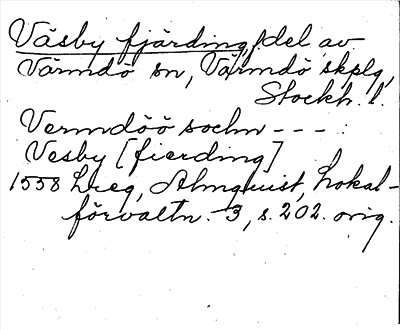 Väsby fjärding, del av
Värmdö sn, Värmdö skplg,
Stockh. l.
Vermdöö sochn - - - :
Vesby [fierding]
1558 Lreg, Almquist, Lokal-
förvaltn. 3, s. 202. orig.